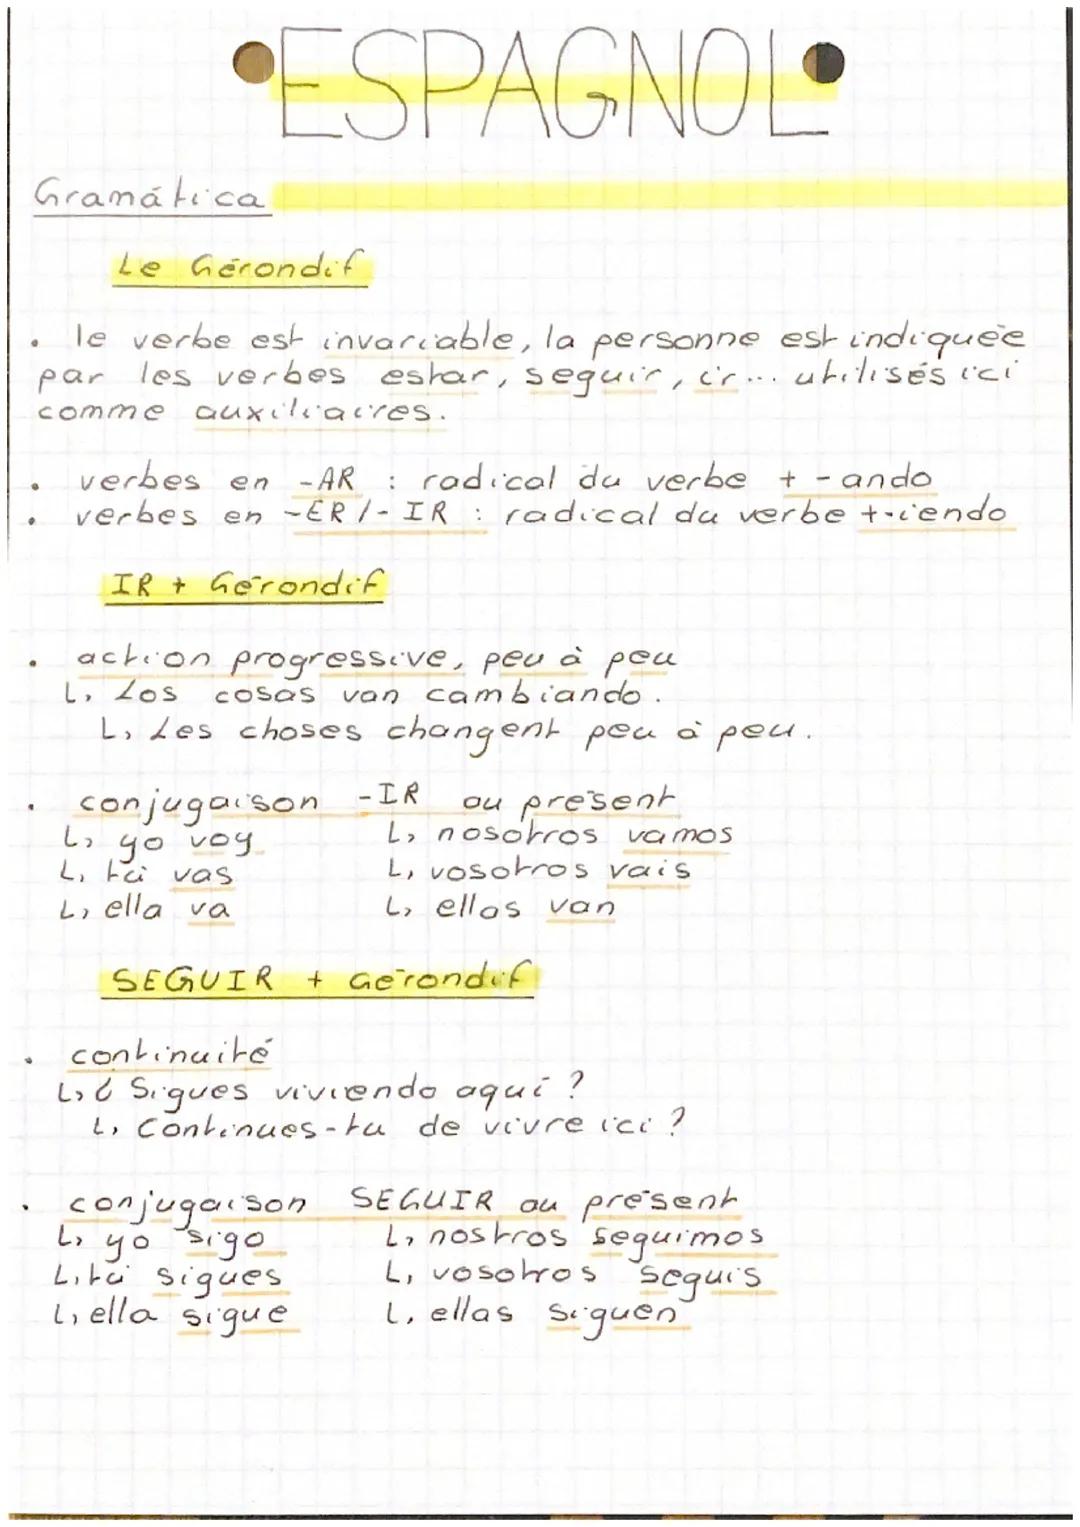 •ESPAGNOL•
Gramática
Le Gérondif
• le verbe est invariable, la personne est indiquée
par les verbes estar, seguir, ir... utilisés ici
comme auxiliaires.
• verbes en -AR : radical du verbe + -ando
• verbes en -ER/-IR : radical du verbe +-iendo
IR + Gérondif
• action progressive, peu à peu
↳ Los cosas van cambiando.
↳ Les choses changent peu à peu.
• conjugaison -IR au présent
↳ yo voy ↳ nosotros vamos
↳ tú vas ↳ vosotros vais
↳ ella va ↳ ellos van
SEGUIR + Gérondif
• continuité
↳ ¿ Sigues viviendo aquí ?
↳ Continues-tu de vivre ici ?
• conjugaison SEGUIR au présent
↳ yo sigo ↳ nostros seguimos
↳ tú sigues ↳ vosotros seguis
↳ ella sigue ↳ ellas siguen